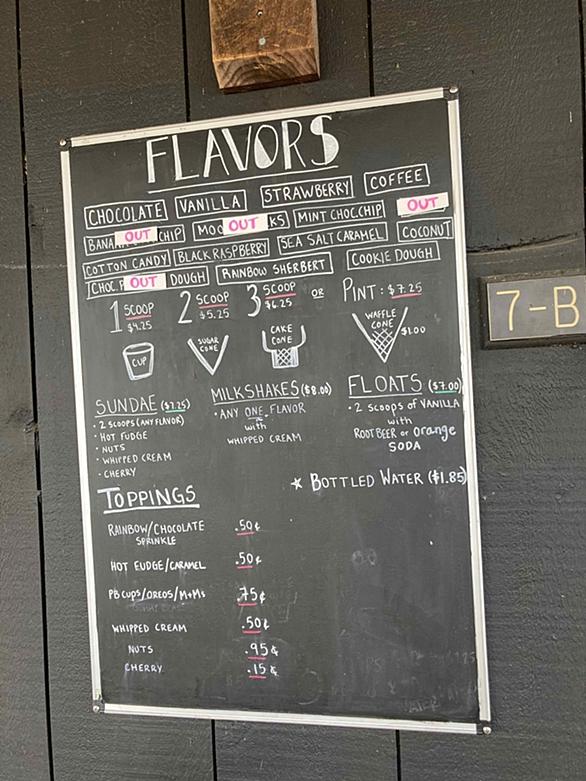 FLAVORS
CHOCOLATE VANILLA STRAWBERRY COFFEE
OUT CHIP MOO OUT KS MINT CHOC.CHIP OUT
COTTON CANDY BLACK RASPBERRY SEA SALT CARAMEL COCONUT
CHOC. P OUT DOUGH RAINBOW SHERBERT COOKIE DOUGH
1 SCOOP $4.25 2 SCOOP $5.25 3 SCOOP $6.25 OR PINT: $7.25
CUP
SUGAR CONE
CAKE CONE
WAFFLE CONE $1.00
7-B
SUNDAE ($7.25)
• 2 SCOOPS (ANY FLAVOR)
• HOT FUDGE
• NUTS
• WHIPPED CREAM
• CHERRY
MILKSHAKES ($8.00)
• ANY ONE FLAVOR
with
WHIPPED CREAM
FLOATS ($7.00)
• 2 SCOOPS of VANILLA
with
ROOT BEER or Orange
SODA
★ BOTTLED WATER ($1.85)
TOPPINGS
RAINBOW/CHOCOLATE SPRINKLE .50¢
HOT FUDGE/CARAMEL .50¢
PB CUPS/OREOS/M+Ms .75¢
WHIPPED CREAM .50¢
NUTS .95¢
CHERRY .15¢